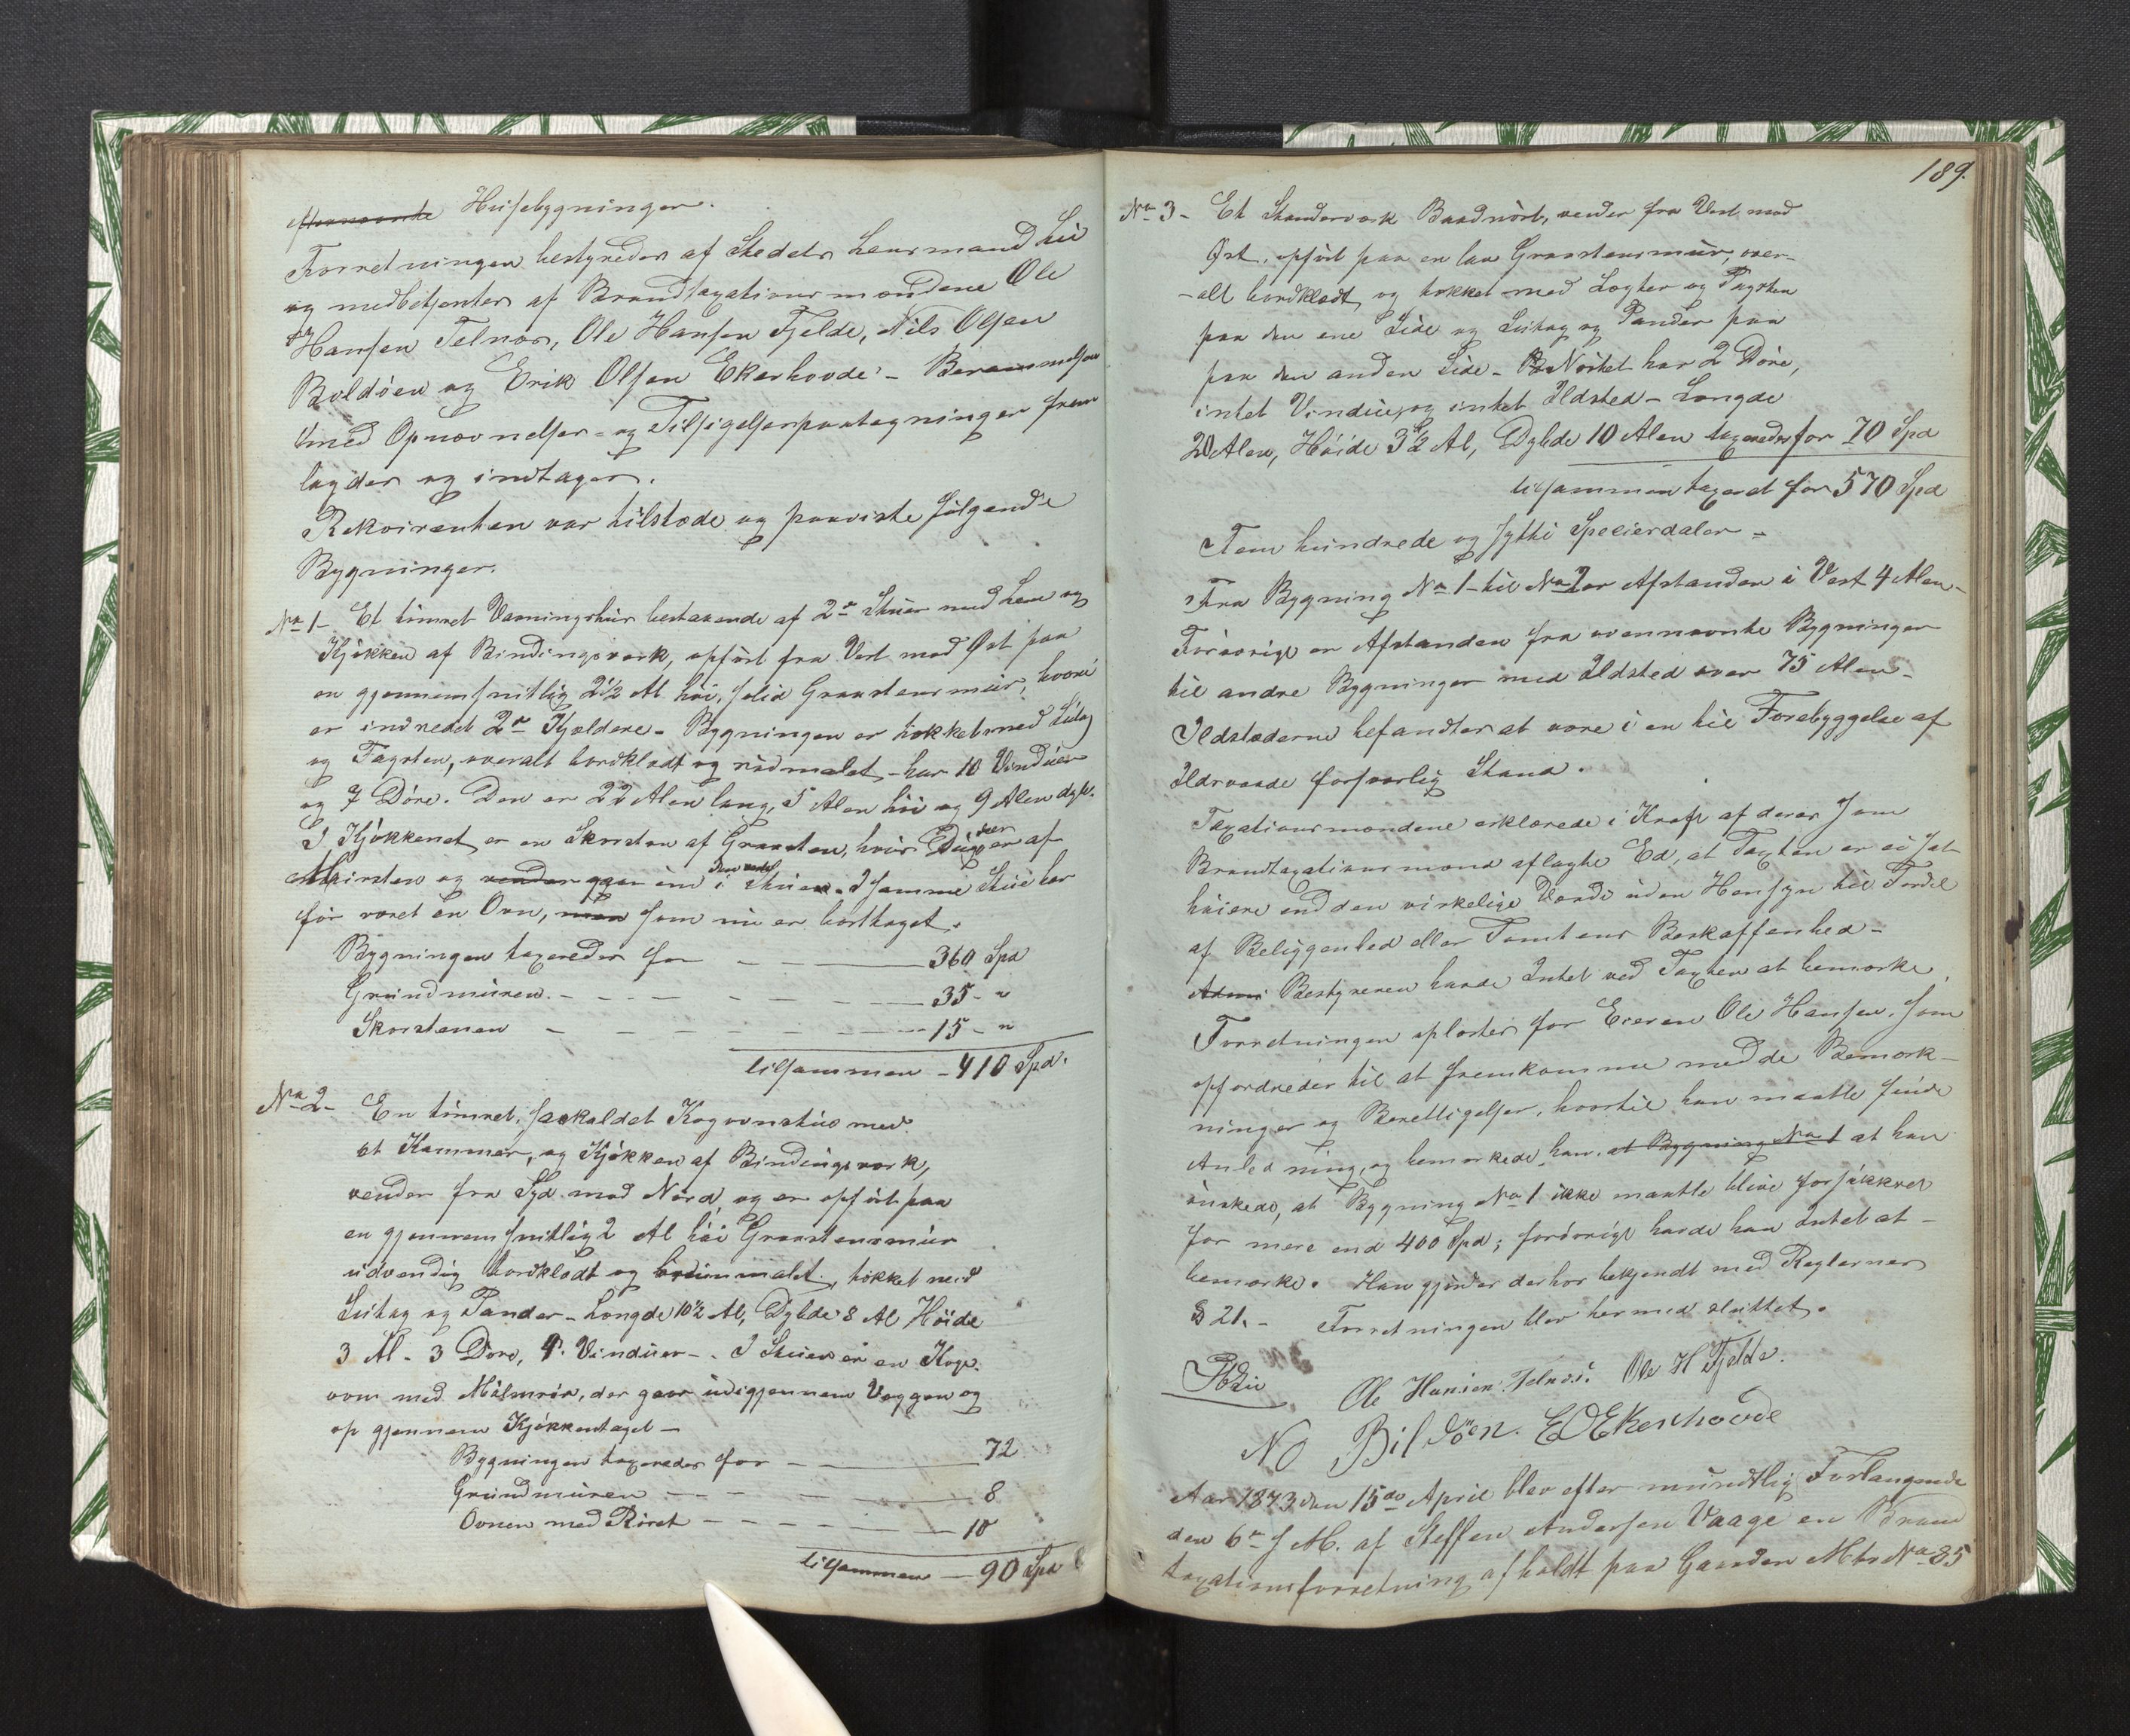 Husebygninger.
Forretningen bestyredes af Stedets Lensmand Lie
og medbetjentes af Brandtaxationsmændene Ole
Hansen Telnæs, Ole Hansen Fjelde, Nils Olsen
Boldöen og Erik Olsen Ekerhovde. - Berammelsen
med Opnævnelses- og Tilsigelsespaategninger frem
lagdes og indtages.
Rekvirenten var tilstede og paaviste fölgende
Bygninger.
No 1 - Et tömret Vaaningshus bestaaende af 2de Stuer med Lem og
Kjökken af Bindingsværk, opfört fra Vest mod Öst paa
en gjennemsnitlig 2½ Al höi, solid Graastensmuur, hvori
er indredet 2de Kjeldere - Bygningen er tækket med Sutag
og Tagsten, overalt bordklædt og rödmalet - har 10 Vinduer
og 7 Döre. Den er 22 Alen lang, 5 Alen höi og 9 Alen dyb.
I Kjökkenet er en Skorsten af Graasten, hvis er af
Muursten og vender ind i den vestl. Stue. I samme Stue har
för været en Ovn, men som nu er borttaget.
Bygningen taxeredes for - 360 Spd
Grundmuren - 35 - "
Skorstenen - 15 - "
tilsammen - 410 Spd.
No 2 - En tömret, saakaldet Kogovnstue med
et Kammer, og Kjökken af Bindingsværk,
vender fra Syd mod Nord og er opfört paa
en gjennemsnitlig 2 Al höi Graastensmuur
udvendig bordklædt og malet, tækket med
Sutag og Pander - Længde 10½ Al, Dybde 8 Al Höide
3 Al - 3 Döre, 4 Vinduer - I Stuen er en Koge-
ovn med Malmrör, der gaar ud igjennem Væggen og
op gjennem Kjökkentaget -
Bygningen taxeredes for - 72
Grundmuren - 8
Ovnen med Röret - 10
tilsammen - 90 Spd
189.
No 3 - Et Standerværk Baadnöst, vender fra Vest mod
Öst, opfört paa en lav Graastensmuur, over-
-alt bordklædt, og tækket med Lægter og Tagsten
paa den ene Side og Sutag og Pander paa
paa den anden Side - Nöstet har 2 Döre,
intet Vindue, og intet Ildsted - Længde
20 Alen, Höide 3½ Al, Dybde 10 Alen taxeredes for 70 Spd
tilsammen taxeret for 570 Spd
Fem hundrede og sytti Speciesdaler -
Fra Bygning No 1 til No 2 er Afstanden i Vest 4 Alen -
Forövrigt er Afstanden fra ovennævnte Bygninger
til andre Bygninger med Ildsted over 75 Alen -
Ildstederne befandtes at være i en til Forebyggelse af
Ildsvaade forsvarlig Stand.
Taxationsmændene erklærede i Kraft af deres som
Brandtaxationsmænd aflagte Ed, at Taxten er ei sat
höiere end den virkelige Værdi uden Hensyn til Fordel
af Beliggenhed eller Tomtens Beskaffenhed -
Bestyreren havde Intet ved Taxten at bemærke.
Forretningen oplæstes for Eieren Ole Hansen, som
opfordredes til at fremkomme med de Bemærk-
ninger og Berettigelser, hvortil han maatte finde
Anledning, og bemærkede han, at Bygning No 1 at han
önskede, at Bygning No 1 ikke maatte blive forsikkret
for mere end 400 Spd; forövrigt havde han Intet at -
bemærke. Han gjordes derhos bekjendt med Reglernes
§ 21. - Forretningen blev hermed sluttet.
Lie Ole Hansen Telnæs. Ole H Fjelde.
NO Bildöen. EO Ekerhovde
Aar 1873 den 15de April blev efter mundtlig Forlangende
den 6te s M. af Steffen Andersen Vaage en Brand
taxationsforretning afholdt paa Gaarden Mtr No 85